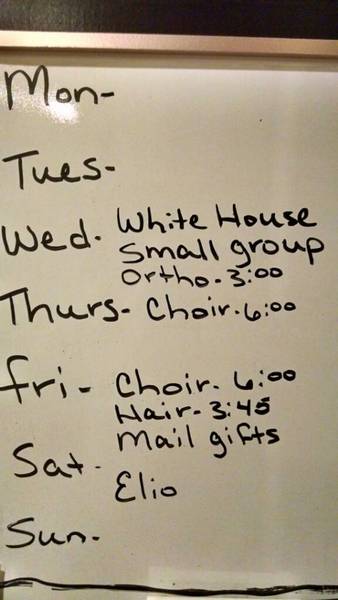 Mon-
Tues-
Wed. White House
Small group
Ortho. 3:00
Thurs- Choir. 6:00
Fri- Choir. 6:00
Hair- 3:45
Mail gifts
Sat.
Elio
Sun.